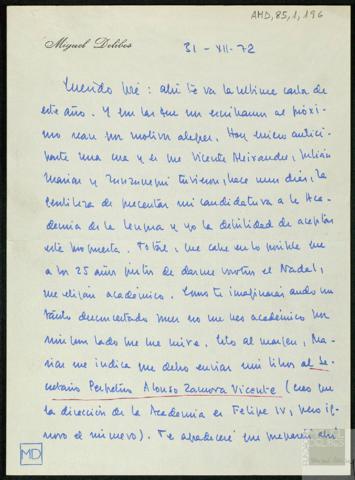 AMD,85,1,196
Miguel Delibes
31-XII-72
Querido José: ahí te va la última carta de
este año. Y en las que nos escribamos el próxi-
mo sean por motivos alegres. Hoy quiero antici-
parte una cosa y es que Vicente Aleixandre, Julián
Marías y Zunzunegui tuvieron, hace unos días, la
gentileza de presentar mi candidatura a la Aca-
demia de la Lengua y yo la debilidad de aceptar
esta propuesta. Total, que cabe en lo posible que
a los 25 años justos de darme vosotros el Nadal,
me elijan académico. Como te imaginarás ando un
tanto desconcertado pues no me veo académico por
ningún lado que me mire. Esto al margen, Ma-
rías me indica que debo enviar mis libros al Se-
cretario Perpetuo Alonso Zamora Vicente (creo que
la dirección de la Academia es Felipe IV, pero ig-
noro el número). Te agradeceré que preparéis ahí
MD